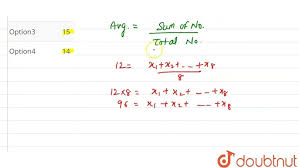 Option3 15
Option4 14
Avg. = Sum of No. / Total No.
12 = x₁+x₂+ -- +x₈ / 8
12×8 = x₁ + x₂ + -- + x₈
96 = x₁ + x₂ + -- + x₈
doubtnut